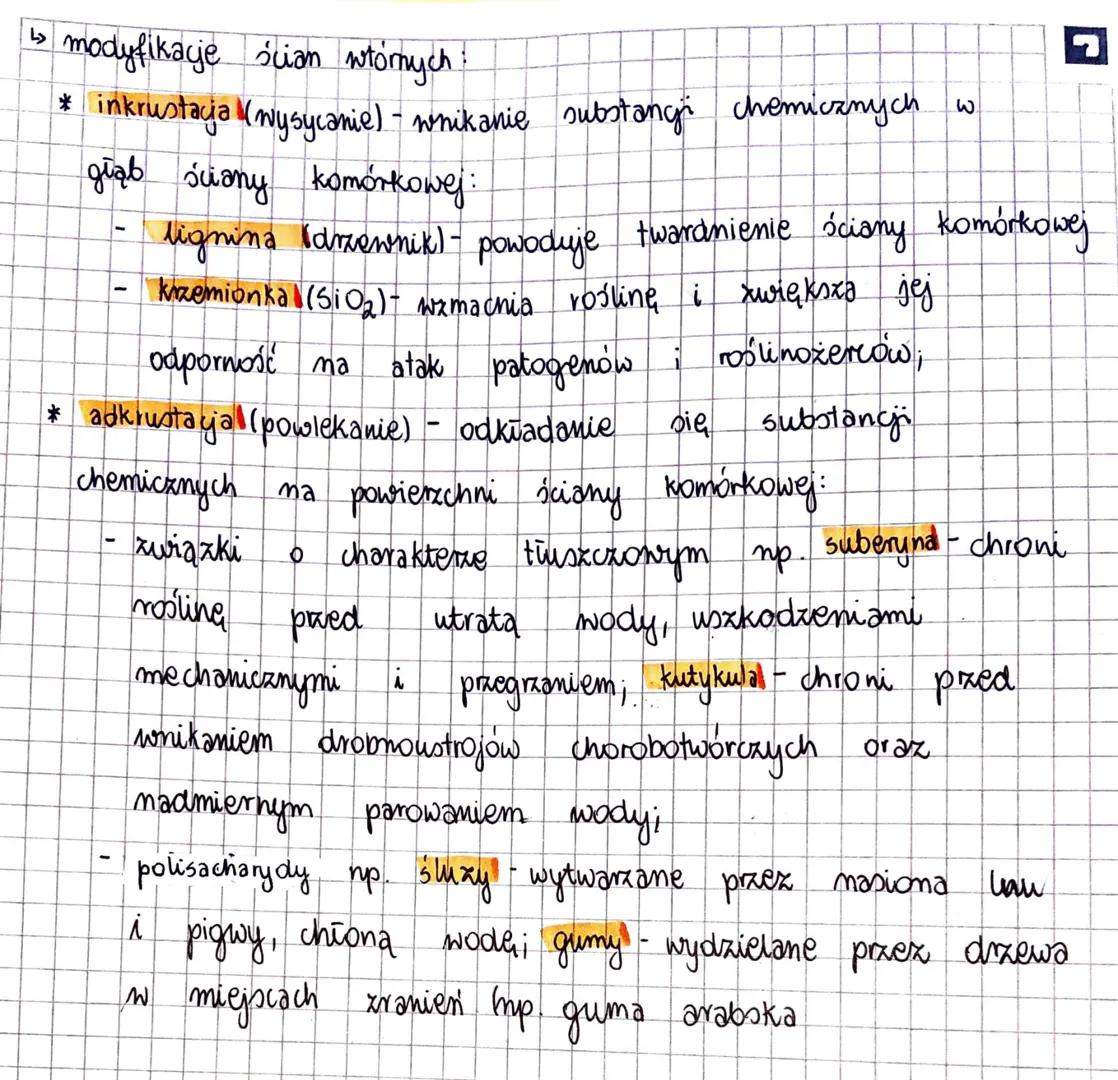 ↳ modyfikacje ścian wtórnych:
* inkrustacja (wysycanie) - wnikanie substancji chemicznych w
głąb ściany komórkowej:
- lignina (drzewnik) - powoduje twardnienie ściany komórkowej
- krzemionka (SiO₂) - wzmacnia roślinę i zwiększa jej
odporność na atak patogenów i roślinożerców;
* adkrustacja (powlekanie) - odkładanie się substancji
chemicznych na powierzchni ściany komórkowej:
- związki o charakterze tłuszczowym np. suberyna - chroni
roślinę przed utratą wody, uszkodzeniami
mechanicznymi i przegrzaniem; kutykula - chroni przed
wnikaniem drobnoustrojów chorobotwórczych oraz
nadmiernym parowaniem wody;
- polisacharydy np. śluzy - wytwarzane przez nasiona lnu
i pigwy, chłoną wodę; gumy - wydzielane przez drzewa
w miejscach zranień (np. guma arabska